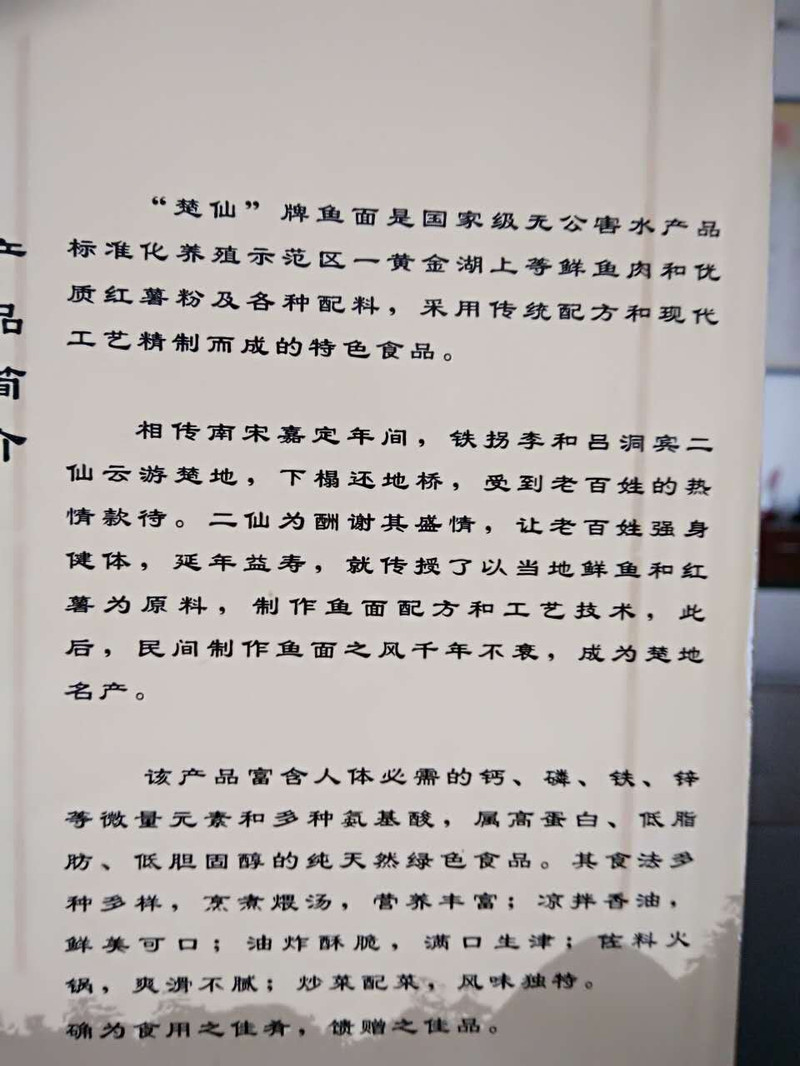 产品简介
“楚仙”牌鱼面是国家级无公害水产品
标准化养殖示范区一黄金湖上等鲜鱼肉和优
质红薯粉及各种配料，采用传统配方和现代
工艺精制而成的特色食品。
相传南宋嘉定年间，铁拐李和吕洞宾二
仙云游楚地，下榻还地桥，受到老百姓的热
情款待。二仙为酬谢其盛情，让老百姓强身
健体，延年益寿，就传授了以当地鲜鱼和红
薯为原料，制作鱼面配方和工艺技术，此
后，民间制作鱼面之风千年不衰，成为楚地
名产。
该产品富含人体必需的钙、磷、铁、锌
等微量元素和多种氨基酸，属高蛋白、低脂
肪、低胆固醇的纯天然绿色食品。其食法多
种多样，烹煮煨汤，营养丰富；凉拌香油，
鲜美可口；油炸酥脆，满口生津；佐料火
锅，爽滑不腻；炒菜配菜，风味独特。
确为食用之佳肴，馈赠之佳品。